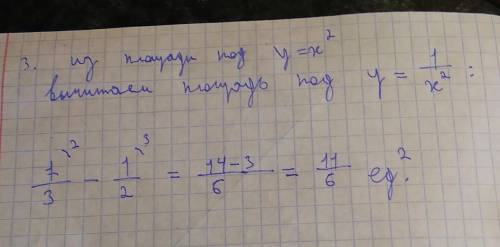 3. из площади под y = x²
вычитаем площадь под y = 1/x² :
7/3 \2 - 1/2 \3 = (14-3)/6 = 11/6 ед².